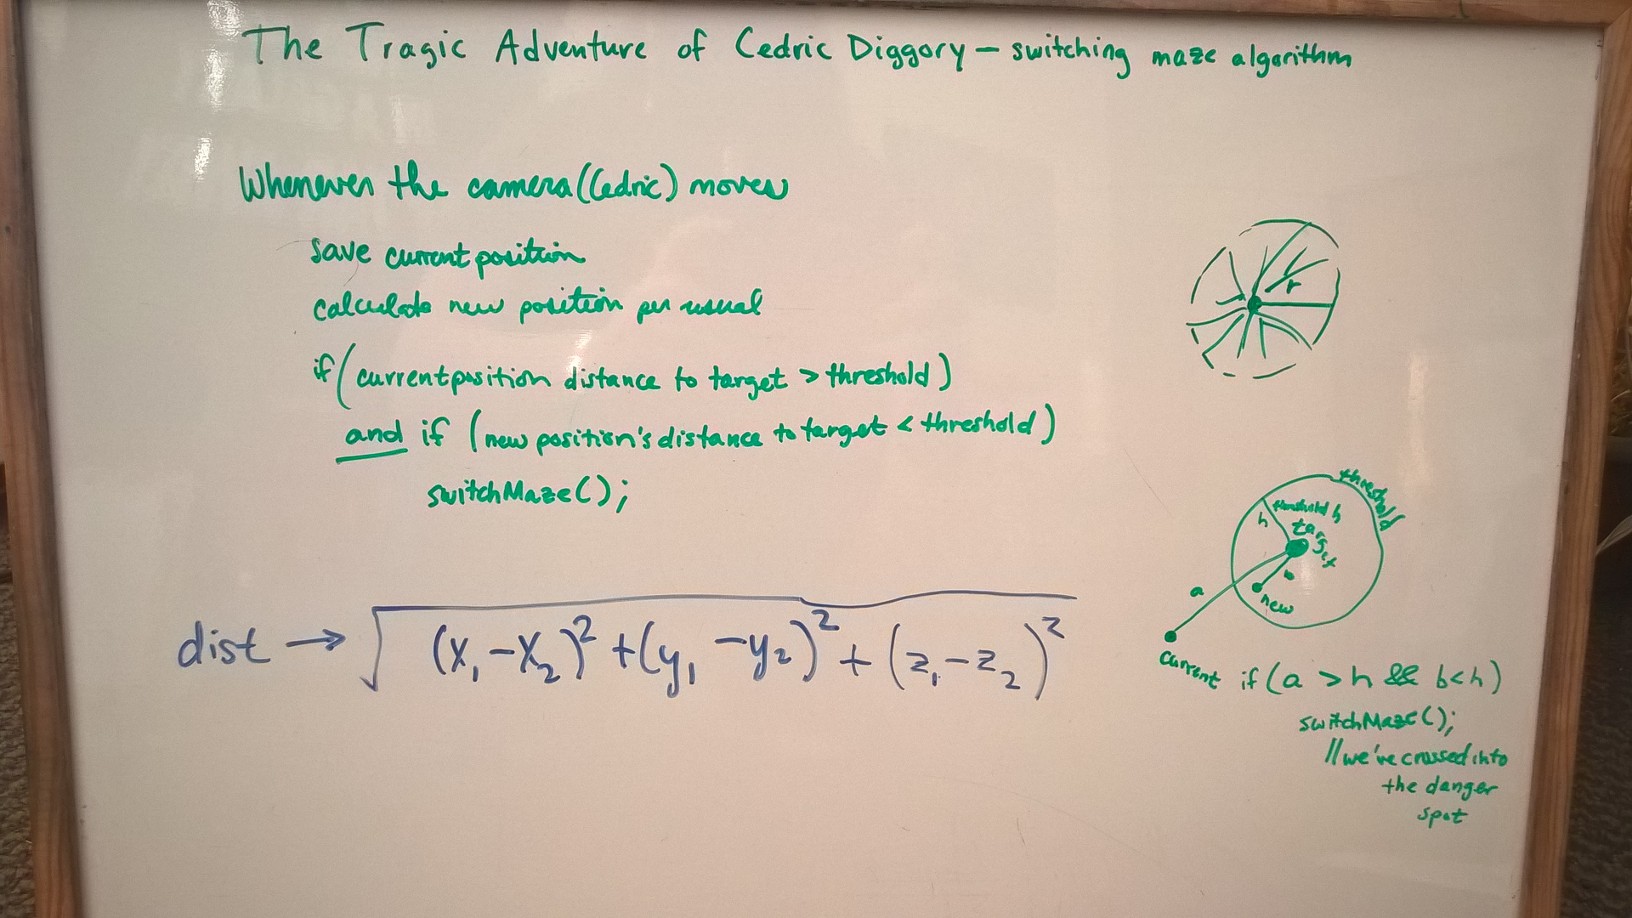 The Tragic Adventure of Cedric Diggory – switching maze algorithm
Whenever the camera (Cedric) moves
save current position
calculate new position per usual
if (current position distance to target > threshold)
and if (new position's distance to target < threshold)
switchMaze();
dist → √(x₁-x₂)² + (y₁-y₂)² + (z₁-z₂)²
r
threshold
threshold h
h
target
b
new
a
current
if (a > h && b < h)
switchMaze();
//we've crossed into
the danger
spot